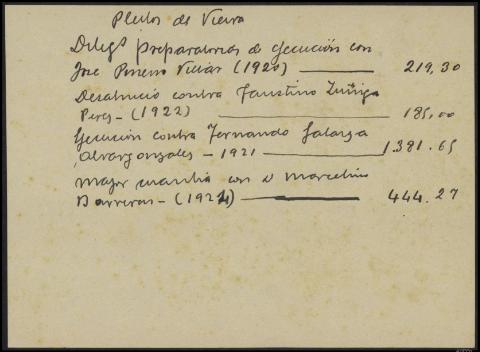 Pleitos de Viera
Diligs preparatorias de ejecución con
Jose Pineiro Villar (1920) 219,30
Desahucio contra Faustino Zuñiga
Peres - (1922) 185,00
Ejecución contra Fernando Galarza
Alvargonzales - 1921 1.381.65
Mayor cuantia con D Marcelino
Barreras - (1924) 444.27